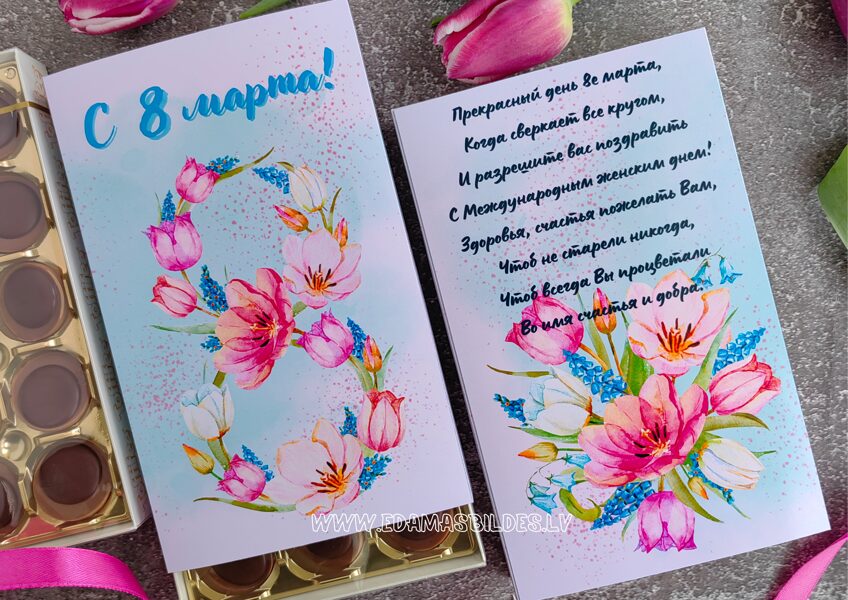 С 8 марта!
Прекрасный день 8е марта,
Когда сверкает все кругом,
И разрешите вас поздравить
С Международным женским днем!
Здоровья, счастья пожелать Вам,
Чтоб не старели никогда,
Чтоб всегда Вы процветали
Во имя счастья и добра.
WWW.EDAMASBILDES.LV